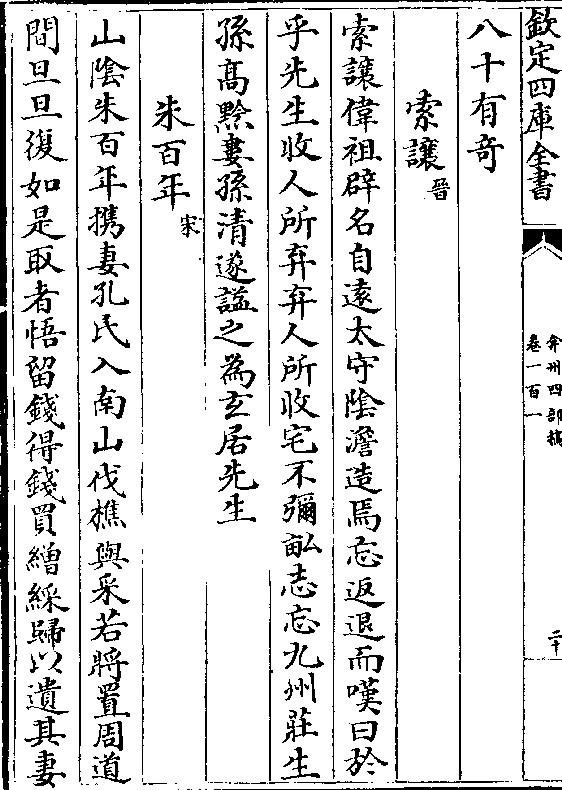 欽定四庫全書
弇州四部稿
卷一百一
二十
八十有奇
索譲晉
索譲偉祖辟名自逺太守陰澹造焉忘返退而嘆曰於
乎先生收人所弃弃人所收宅不彌畝志忘九州莊生
孫髙黔婁孫清遂謚之為玄居先生
朱百年宋
山陰朱百年携妻孔氏入南山伐樵與采若將置周道
間旦旦復如是取者悟留錢得錢買繒綵歸以遺其妻